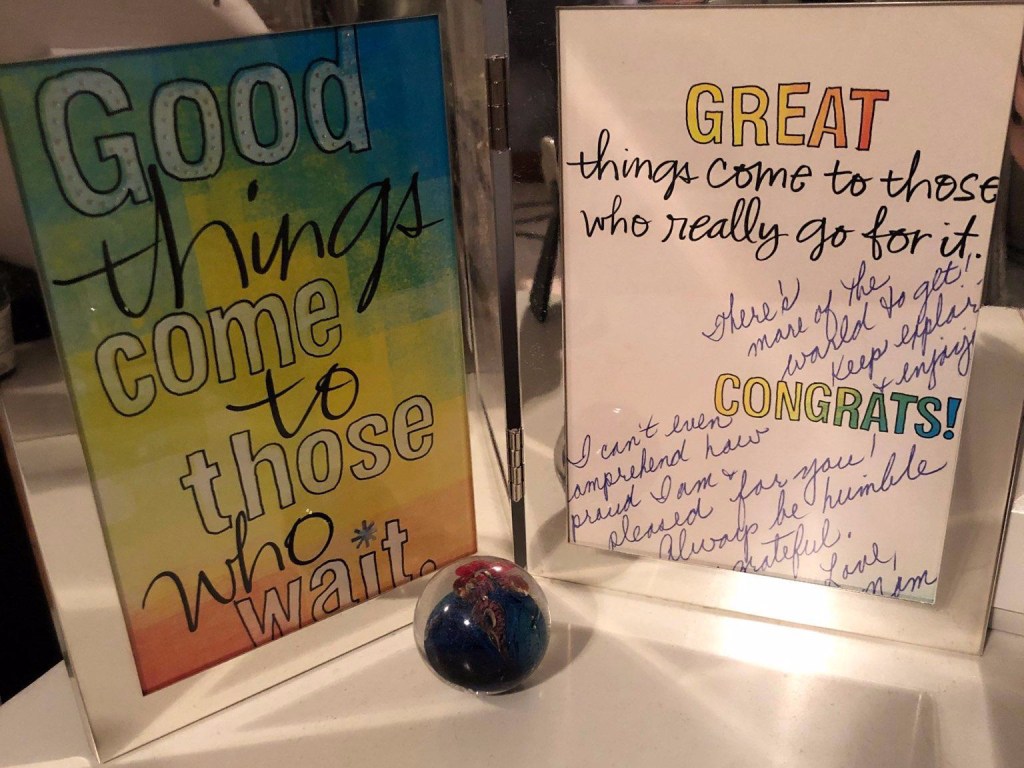 Good
things
come
to
those
who
wait.
GREAT
things come to those
who really go for it.
There's
more of the
world to get!
Keep explor
+ enjoy
CONGRATS!
I can't even
comprehend how
proud I am +
pleased for you!
Always be humble
+ grateful.
Love,
Mom